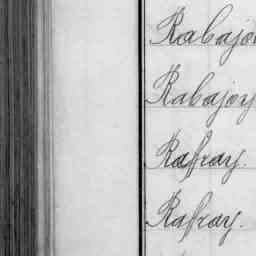 Rabajoy
Rabajoy
Rafray.
Rafray.